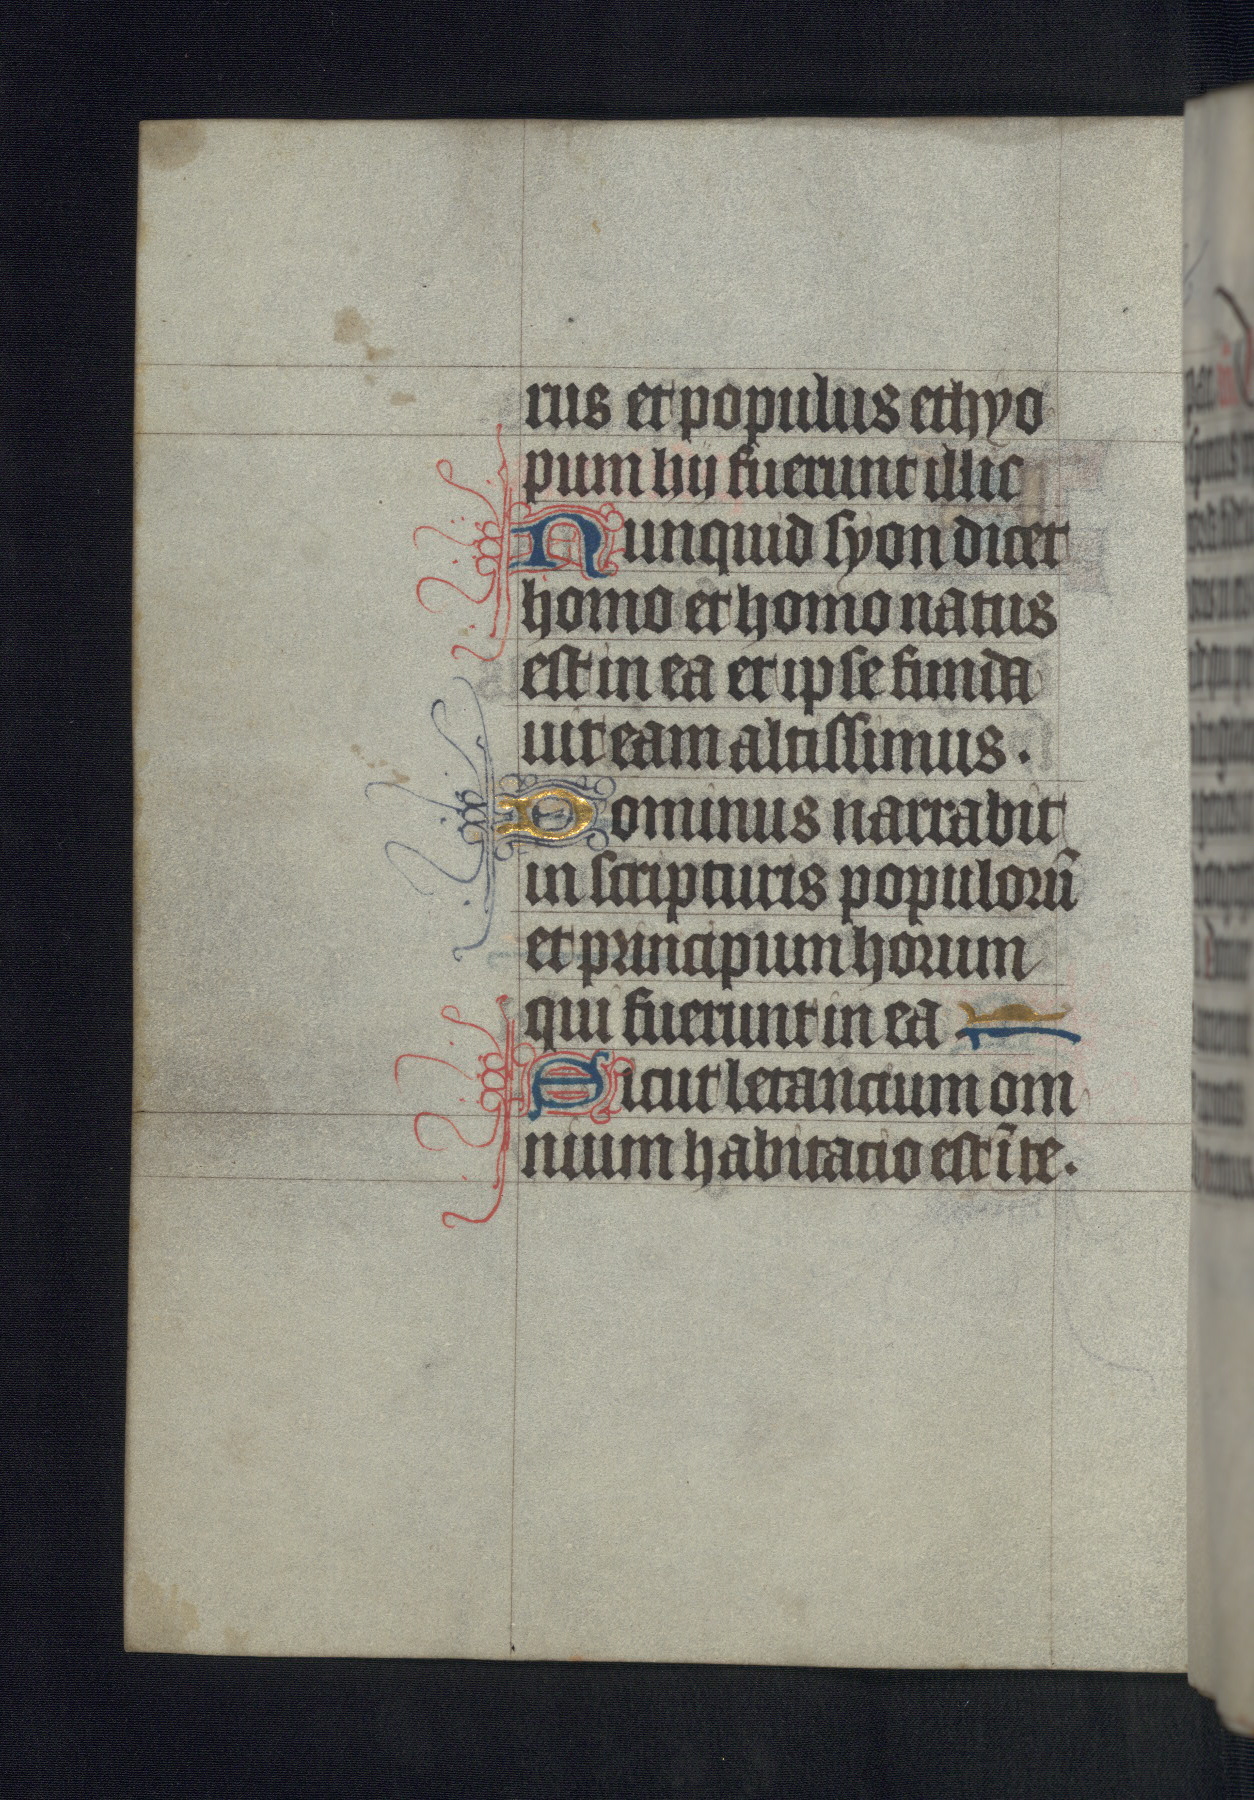 rus et populus ethyo
pum hij fuerunt illic
Nunquid syon dicet
homo et homo natus
est in ea et ipse funda
uit eam altissimus .
Dominus narrabit
in scripturis populorū
et principum horum
qui fuerunt in ea
Sicut letancium om
nium habitacio est ī te .